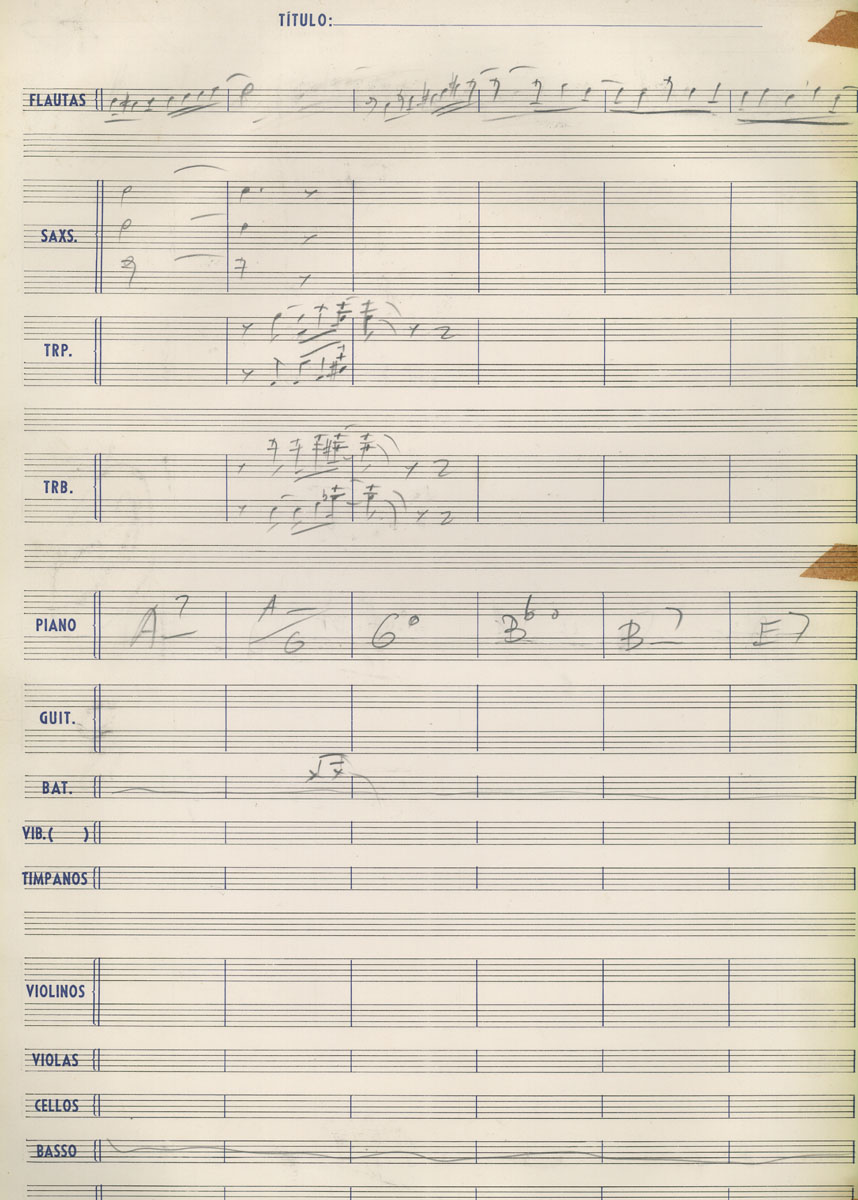 TÍTULO:
FLAUTAS
SAXS.
TRP.
TRB.
PIANO A-7 A-/G G° Bb° B-7 E7
GUIT.
BAT.
VIB.( )
TIMPANOS
VIOLINOS
VIOLAS
CELLOS
BASSO